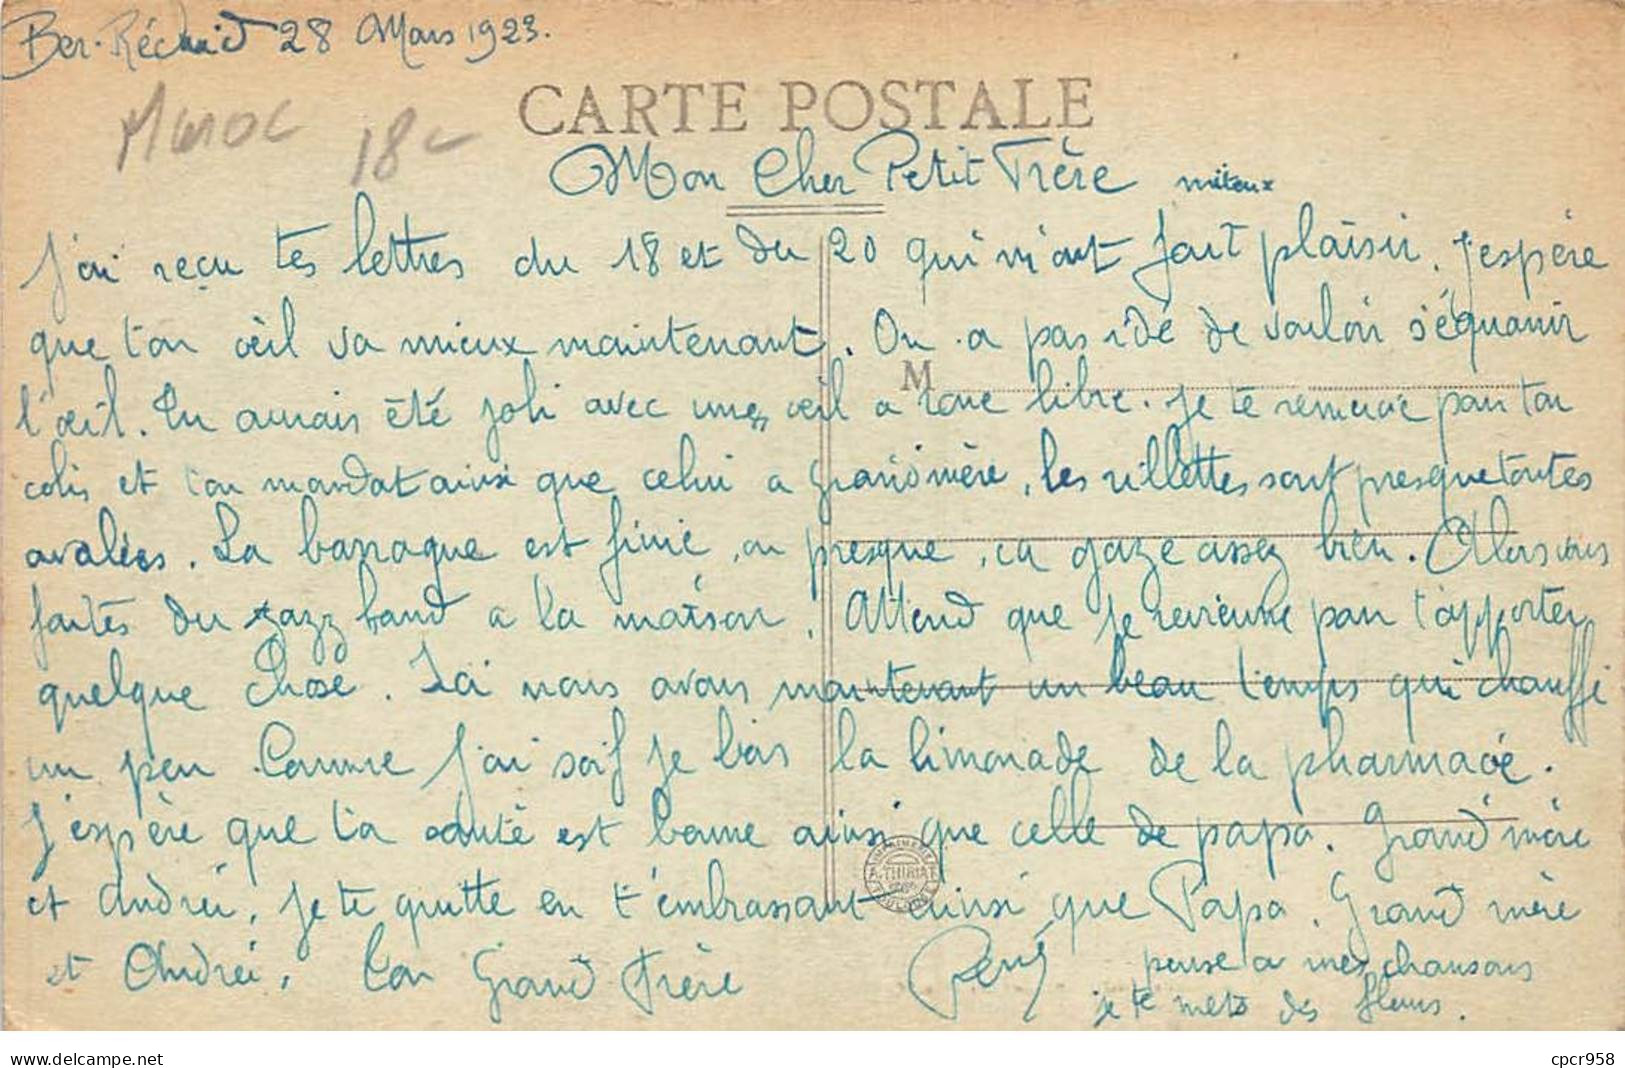 Ber-Réchid 28 Mars 1923.
Maroc 18
CARTE POSTALE
Mon Cher Petit Frère miteux
J'ai reçu tes lettres du 18 et du 20 qui m'ont fait plaisir. J'espère
que ton œil va mieux maintenant. On a pas idé de vouloir s'équarrir
M
l'œil. Tu aurais été joli avec une œil a roue libre. Je te remercie pour ton
colis et ton mandat ainsi que celui a Grand mère, les rillettes sont presque toutes
avalées. La barraque est finie, ou presque, ça gaze assez bien. Alors vous
faites du jazz band a la maison. Attend que je revienne pour t'apporter
quelque chose. Ici nous avons maintenant un beau temps qui chauffe
un peu. Comme j'ai soif je bois la limonade de la pharmacie.
J'espère que ta santé est bonne ainsi que celle de papa. Grand mère
et André, je te quitte en t'embrassant ainsi que Papa. Grand mère
et André. Ton Grand Frère René
pense a mes chansons
je te mets des fleurs.
IMPRIMERIE
A. THIRIAT
TOULOUSE
cpcr958